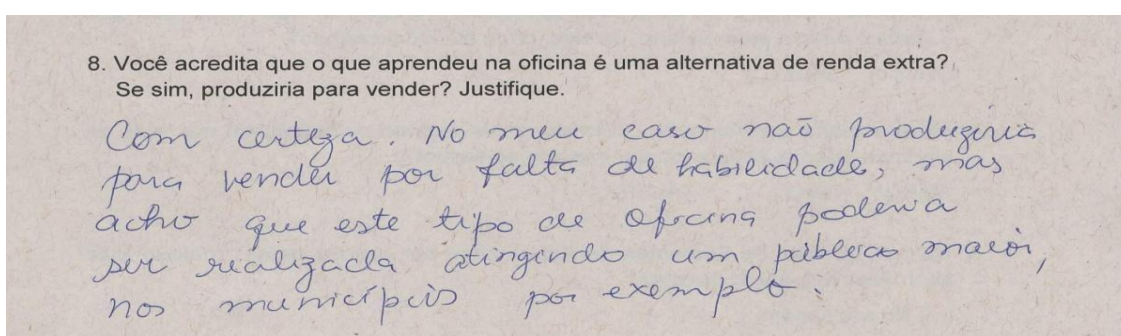 8. Você acredita que o que aprendeu na oficina é uma alternativa de renda extra?
Se sim, produziria para vender? Justifique.
Com certeza. No meu caso não produziria
para vender por falta de habilidade, mas
acho que este tipo de oficina poderia
ser realizada atingindo um público maior,
nos municípios por exemplo.